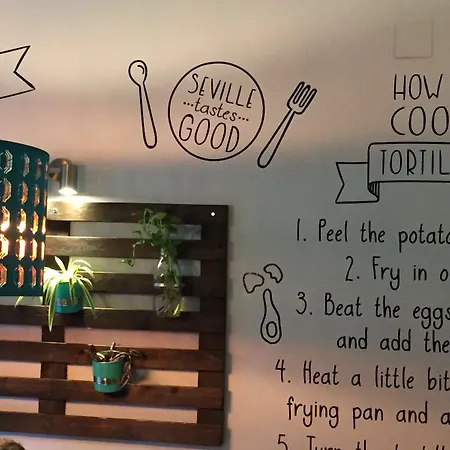 SEVILLE
...tastes...
GOOD
HOW
COO
TORTIL
1. Peel the potato
2. Fry in o
3. Beat the eggs
and add the
4. Heat a little bit
frying pan and a
5. Turn the